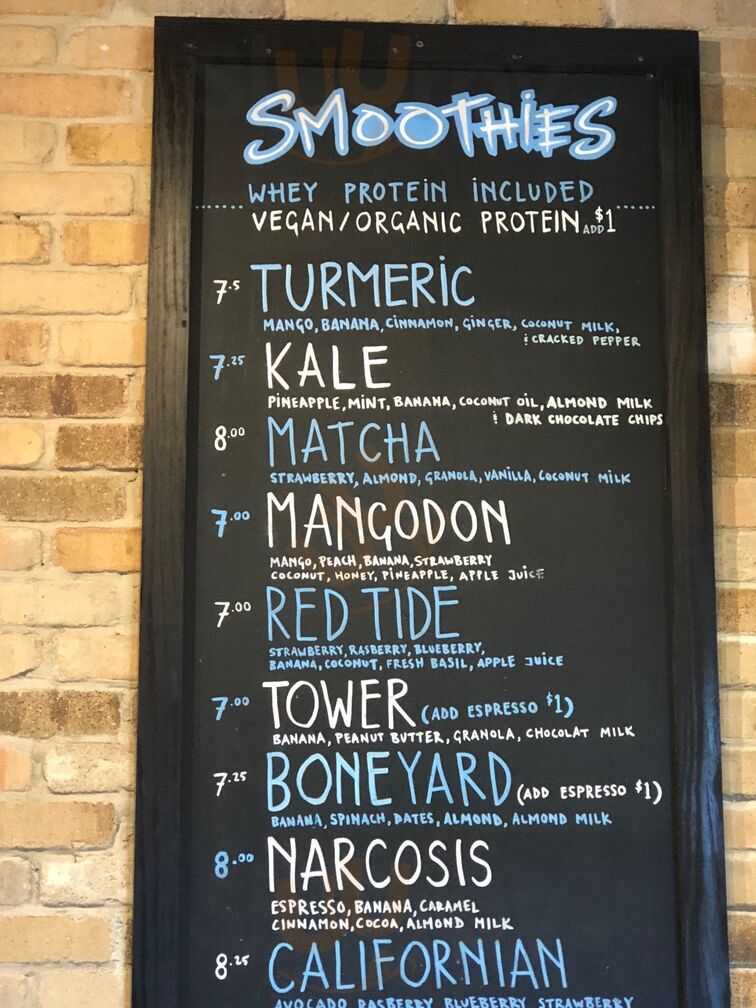 SMOOTHIES
WHEY PROTEIN INCLUDED
VEGAN/ORGANIC PROTEIN ADD $1
7.5 TURMERIC
MANGO, BANANA, CINNAMON, GINGER, COCONUT MILK,
& CRACKED PEPPER
7.25 KALE
PINEAPPLE, MINT, BANANA, COCONUT OIL, ALMOND MILK
& DARK CHOCOLATE CHIPS
8.00 MATCHA
STRAWBERRY, ALMOND, GRANOLA, VANILLA, COCONUT MILK
7.00 MANGODON
MANGO, PEACH, BANANA, STRAWBERRY
COCONUT, HONEY, PINEAPPLE, APPLE JUICE
7.00 RED TIDE
STRAWBERRY, RASBERRY, BLUEBERRY,
BANANA, COCONUT, FRESH BASIL, APPLE JUICE
7.00 TOWER (ADD ESPRESSO $1)
BANANA, PEANUT BUTTER, GRANOLA, CHOCOLAT MILK
7.25 BONEYARD (ADD ESPRESSO $1)
BANANA, SPINACH, DATES, ALMOND, ALMOND MILK
8.00 NARCOSIS
ESPRESSO, BANANA, CARAMEL
CINNAMON, COCOA, ALMOND MILK
8.25 CALIFORNIAN
AVOCADO RASBERRY BLUEBERRY STRAWBERRY